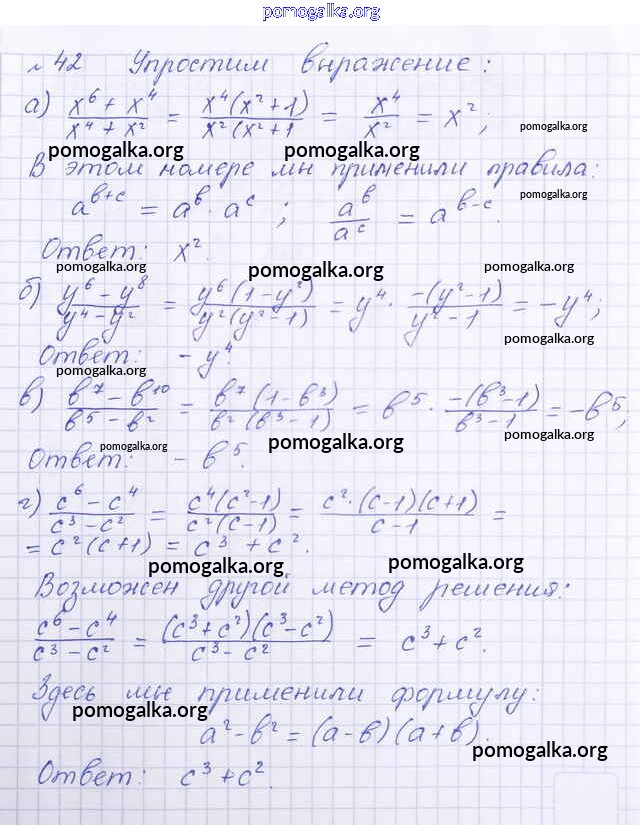 pomogalka.org
№ 42 Упростим выражение:
а) x⁶ + x⁴ / x⁴ + x² = x⁴(x² + 1) / x²(x² + 1 = x⁴ / x² = x²;
pomogalka.org
pomogalka.org pomogalka.org
В этом номере мы применили правила:
pomogalka.org
a^(b+c) = a^b · a^c ; a^b / a^c = a^(b-c).
Ответ: x².
pomogalka.org pomogalka.org pomogalka.org
б) y⁶ - y⁸ / y⁴ - y² = y⁶(1 - y²) / y²(y² - 1) = y⁴ · -(y² - 1) / y² - 1 = - y⁴;
pomogalka.org
Ответ: - y⁴.
pomogalka.org
в) b⁷ - b¹⁰ / b⁵ - b² = b⁷(1 - b³) / b²(b³ - 1) = b⁵ · -(b³ - 1) / b³ - 1 = - b⁵;
pomogalka.org pomogalka.org pomogalka.org
Ответ: - b⁵.
г) c⁶ - c⁴ / c³ - c² = c⁴(c² - 1) / c²(c - 1) = c² · (c - 1)(c + 1) / c - 1 =
= c²(c + 1) = c³ + c².
pomogalka.org pomogalka.org
Возможен другой метод решения:
c⁶ - c⁴ / c³ - c² = (c³ + c²)(c³ - c²) / c³ - c² = c³ + c².
Здесь мы применили формулу:
pomogalka.org
a² - b² = (a - b)(a + b).
pomogalka.org
Ответ: c³ + c².